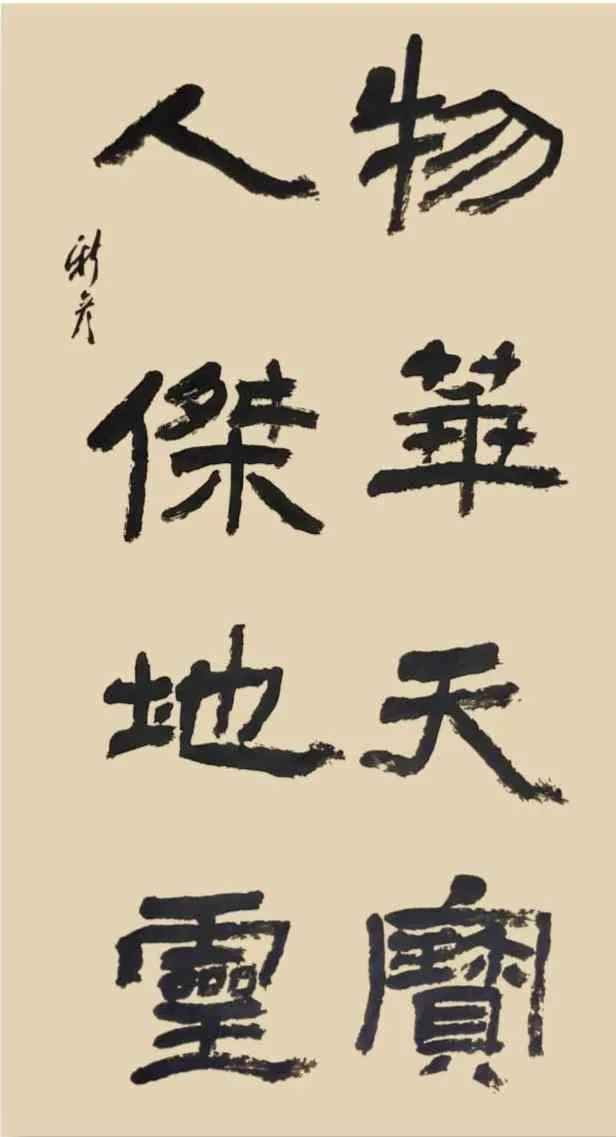 物華天寶
人傑地靈
新彦